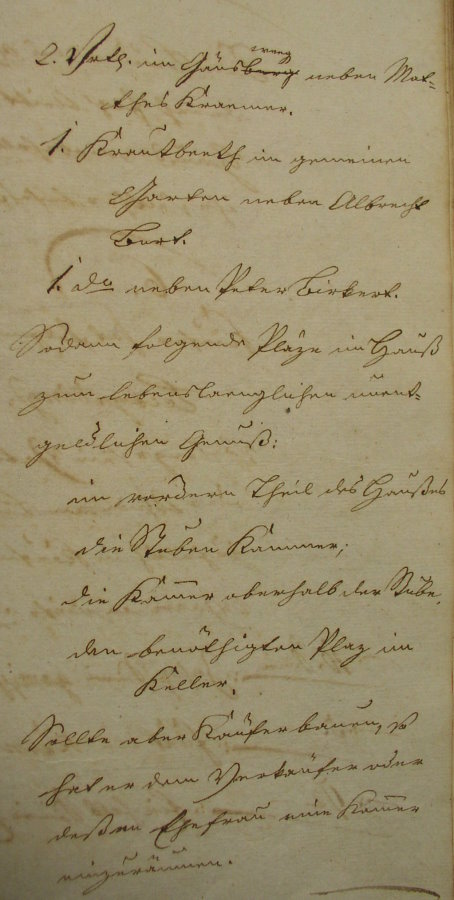 weeg
2. Vrtl. im Gänsberg neben Mat-
thes Kraemer.
1. Krautbeeth im gemeinen
Garten neben Albrecht
Bart.
1. do neben Peter Birkert.
Sodann folgende Pläze im Hauß
zum lebenslaenglichen unent-
geldlichen Genuß:
im vordern Theil des Haußes
die Stuben Kammer;
die Kam̄er oberhalb der Stube,
den benöthigten Plaz im
Keller.
Sollte aber Käufer bauen, so
hat er dem Verkäufer oder
deßen Ehefrau eine Kam̄er
einzuräumen.